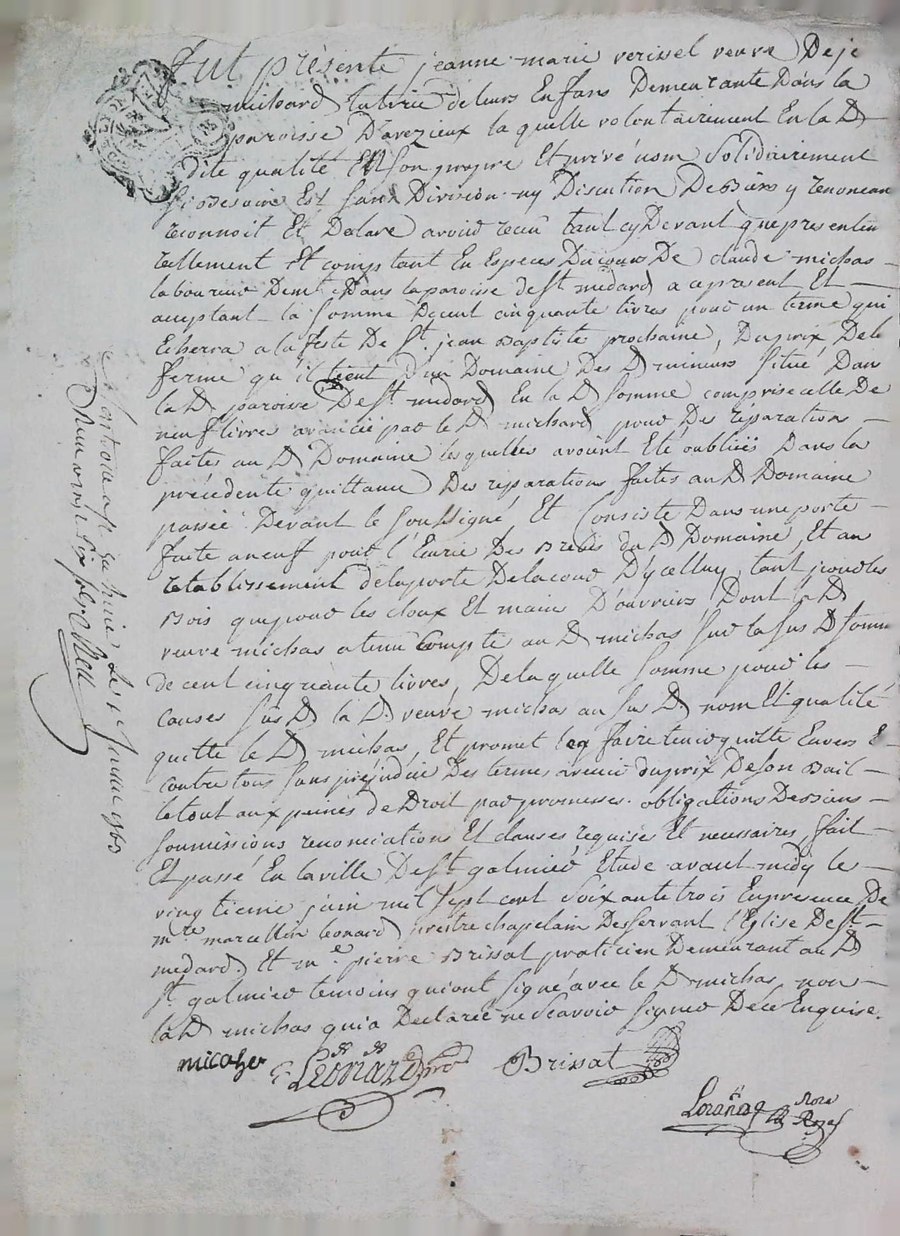 fut présente jeanne marie verissel veuve De je
michard tutrice de leurs Enfans Demeurante Dans la
paroisse D'avezieux la quelle volontairement En la D
dite qualité Et Son propre Et privé nom Solidairement
Si Besoin Est sans Division ny Discution De Biens y renoncean
reconnoit Et Declare avoir receu tant cy Devant que presentem
réellement Et comptant En Especes Du cours De claude michas
laboureur Demt Dans la paroisse de St medard a ce present Et
acceptant la somme De cent cinquante livres pour un terme qui
Echerra a la feste De St jean Baptiste prochaine, Du prix De la
ferme qu'il tient D'un Domaine Des D mineurs Situé Dans
la D paroisse De St medard En la D Somme comprise celle De
neuf livres avancée par le D michard pour Des réparations
faites au D Domaine lesquelles avoint Eté oubliées Dans la
précédente quittance Des reparations faites au D Domaine
passée Devant le soussigné, Et Consiste Dans une porte
faite a neuf pour l'Ecurie Des Brebis du D Domaine, Et au
retablissement de la porte De la cour D'ycelluy, tant pour les
Bois que pour les cloux Et mains D'ouvriers, Dont la D
veuve michas a tenu Compte au D michas Sur la Sus D Somme
de cent cinquante livres, De la quelle Somme pour les
causes Sus D la D veuve michas au Sus D nom Et qualité
quitte le D michas, Et promet l'en faire tenir quitte Envers E
contre tous sans préjudice Des termes avenir du prix De son Bail
le tout aux peines de Droit par promesses obligations De Biens
soumissions renonciations Et clauses requises Et necessaires, fait
Et passé En la ville De St galmier Etude avant midy le
vingtieme juin mil Sept cent Soixante trois En presence De
mre marcellin Leonard prestre chapelain Desservant l'Eglise De St
medard. Et me pierre Brissat praticien Demeurant au D
St galmier temoins qui ont Signé avec le D michas, non
la D michas qui a Declarée ne Scavoir Signer De ce Enquise.
micahs
Leonard
Brissat